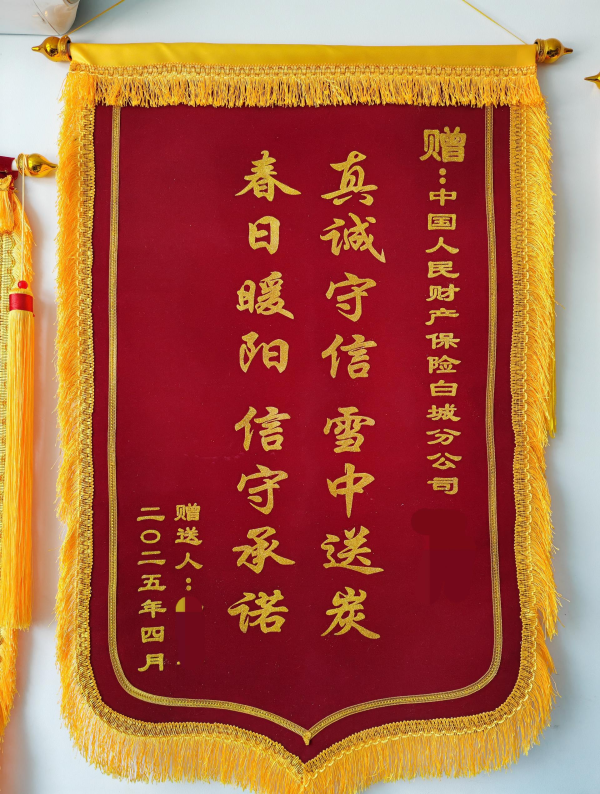 赠:中国人民财产保险白城分公司
真诚守信 雪中送炭
春日暖阳 信守承诺
赠送人:
二〇二五年四月